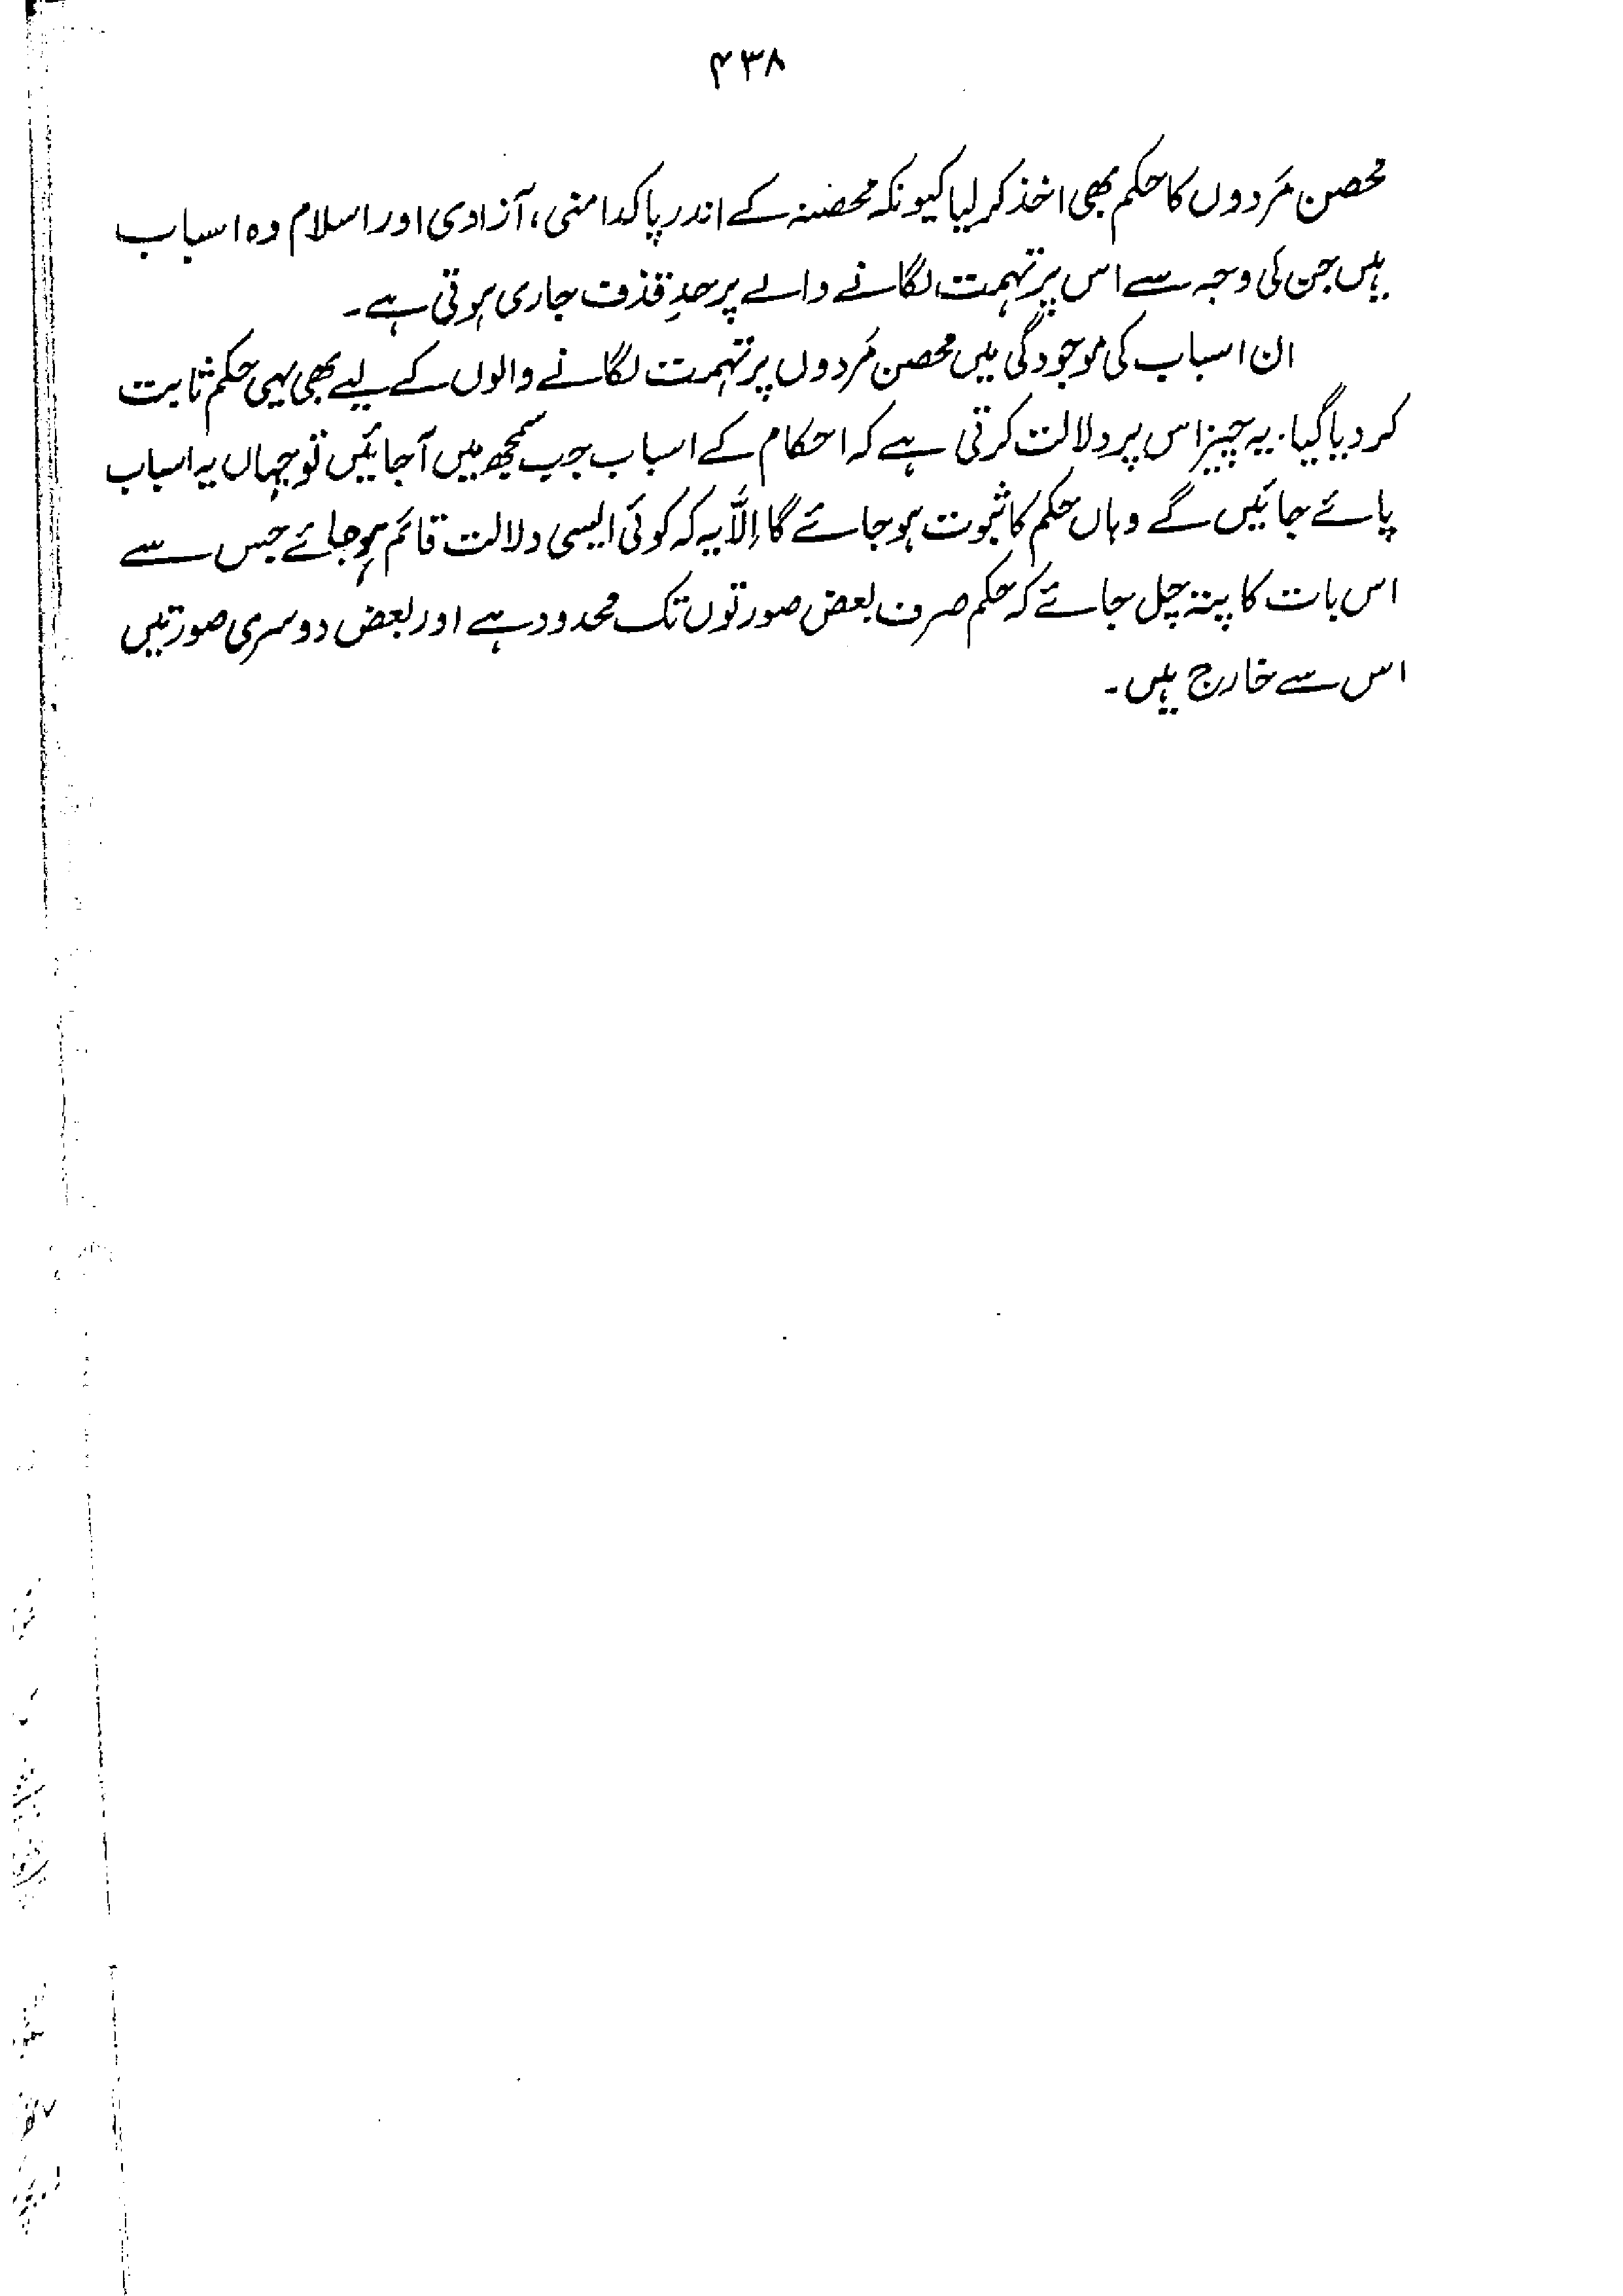 ۴۳۸
محصن مَردوں کا حکم بھی اخذ کر لیا کیونکہ محصنہ کے اندر پاکدامنی، آزادی اور اسلام وہ اسباب
ہیں جن کی وجہ سے اس پر تہمت لگانے والے پر حدِ قذف جاری ہوتی ہے۔
ان اسباب کی موجودگی میں محصن مَردوں پر تہمت لگانے والوں کے لیے بھی یہی حکم ثابت
کر دیا گیا۔ یہ چیز اس پر دلالت کرتی ہے کہ احکام کے اسباب جب سمجھ میں آجائیں تو جہاں یہ اسباب
پائے جائیں گے وہاں حکم کا ثبوت ہو جائے گا اِلّا یہ کہ کوئی ایسی دلالت قائم ہو جائے جس سے
اس بات کا پتہ چل جائے کہ حکم صرف بعض صورتوں تک محدود ہے اور بعض دوسری صورتیں
اس سے خارج ہیں۔